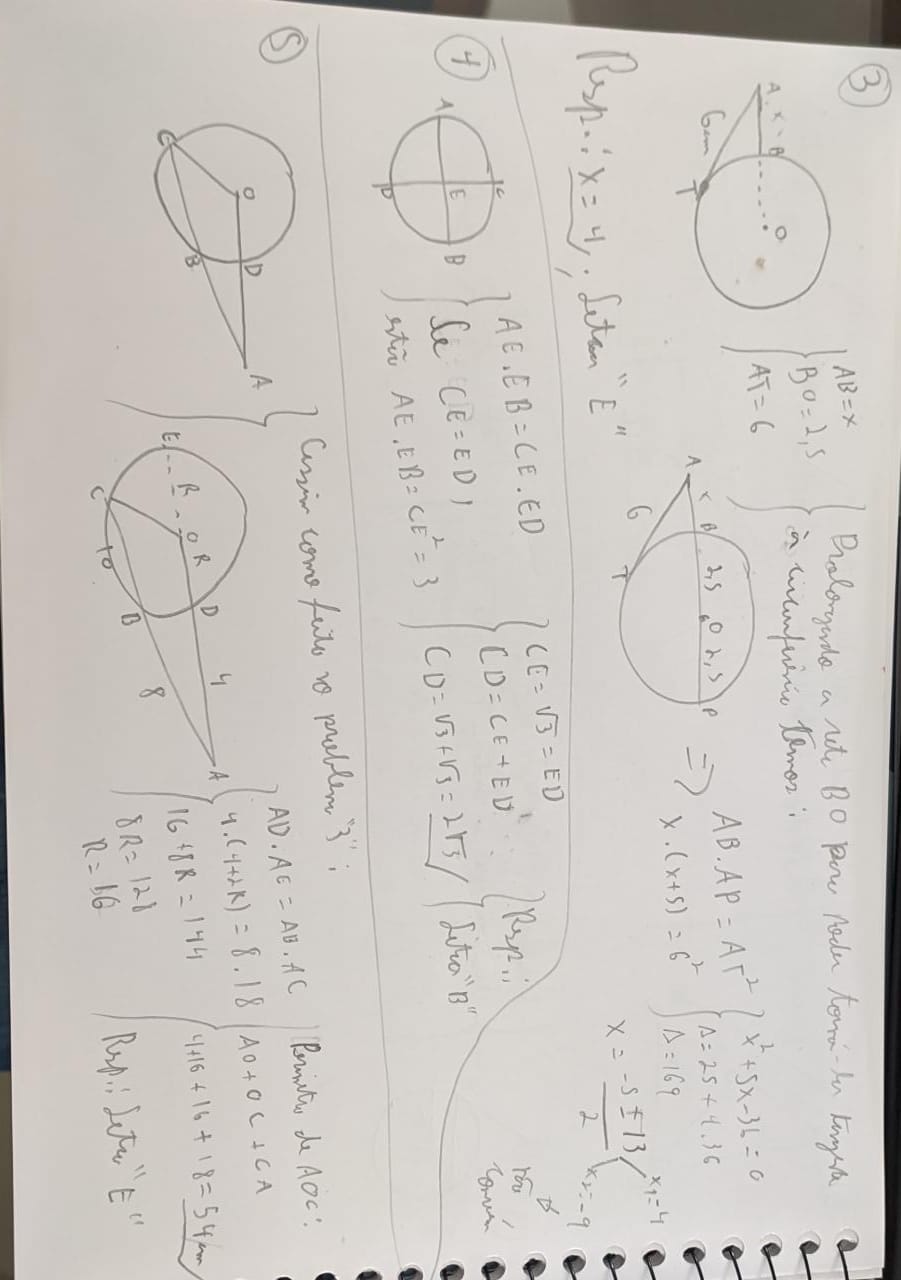 3
A x B
6cm
T
O
AB=x
BO=2,5
AT=6
Prolongando a reta BO para poder torná-la
à circunferência temos:
A x B 2,5 O 2,5 P
6
T
=> AB.AP=AT²
x.(x+5)=6²
x²+5x-36=0
Δ=25+4.36
Δ=169
x=-5±13
2
x₁=4
x₂=-9
não
convém
Resp.: x=4, Letra "E"
4
A
C
E
B
D
AE.EB=CE.ED
Se CE=ED,
então AE.EB=CE²=3
CE=√3=ED
CD=CE+ED
CD=√3+√3=2√3
Resp.:
Letra "B"
5
C
O
D
B
A
Assim como feito no problema "3":
E R O R D 4 A
C 10 B 8
AD.AE=AB.AC
4.(4+2R)=8.18
16+8R=144
8R=128
R=16
Perímetro de AOC:
AO+OC+CA
4+16+16+18=54cm
Resp.: Letra "E"